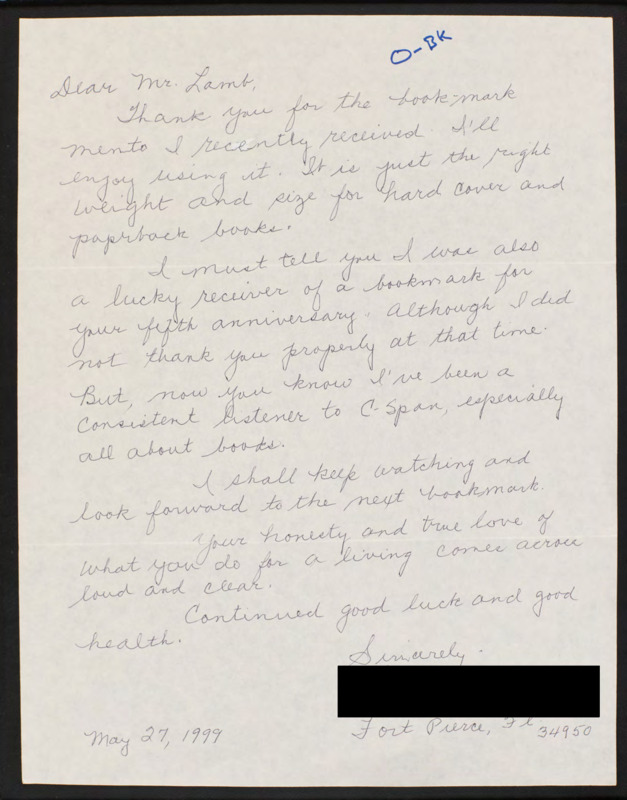 O-BK
Dear Mr. Lamb,
Thank you for the book-mark
mento I recently received. I'll
enjoy using it. It is just the right
weight and size for hard cover and
paprback books.
I must tell you I was also
a lucky receiver of a bookmark for
your fifth anniversary. Although I did
not thank you properly at that time.
But, now you know I've been a
consistent listener to C-Span, especially
all about books.
I shall keep watching and
look forward to the next bookmark.
Your honesty and true love of
what you do for a living comes across
loud and clear.
Continued good luck and good
health.
Sincerely.
Fort Pierce, Fl.
34950
May 27, 1999